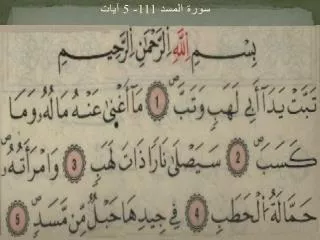 سورة المسد 111- 5 آيات
بِسْمِ اللَّهِ الرَّحْمَٰنِ الرَّحِيمِ
تَبَّتْ يَدَآ أَبِي لَهَبٍ وَتَبَّ ۝١ مَآ أَغْنَىٰ عَنْهُ مَالُهُۥ وَمَا
كَسَبَ ۝٢ سَيَصْلَىٰ نَارًا ذَاتَ لَهَبٍ ۝٣ وَٱمْرَأَتُهُۥ
حَمَّالَةَ ٱلْحَطَبِ ۝٤ فِي جِيدِهَا حَبْلٌ مِّن مَّسَدٍۭ ۝٥